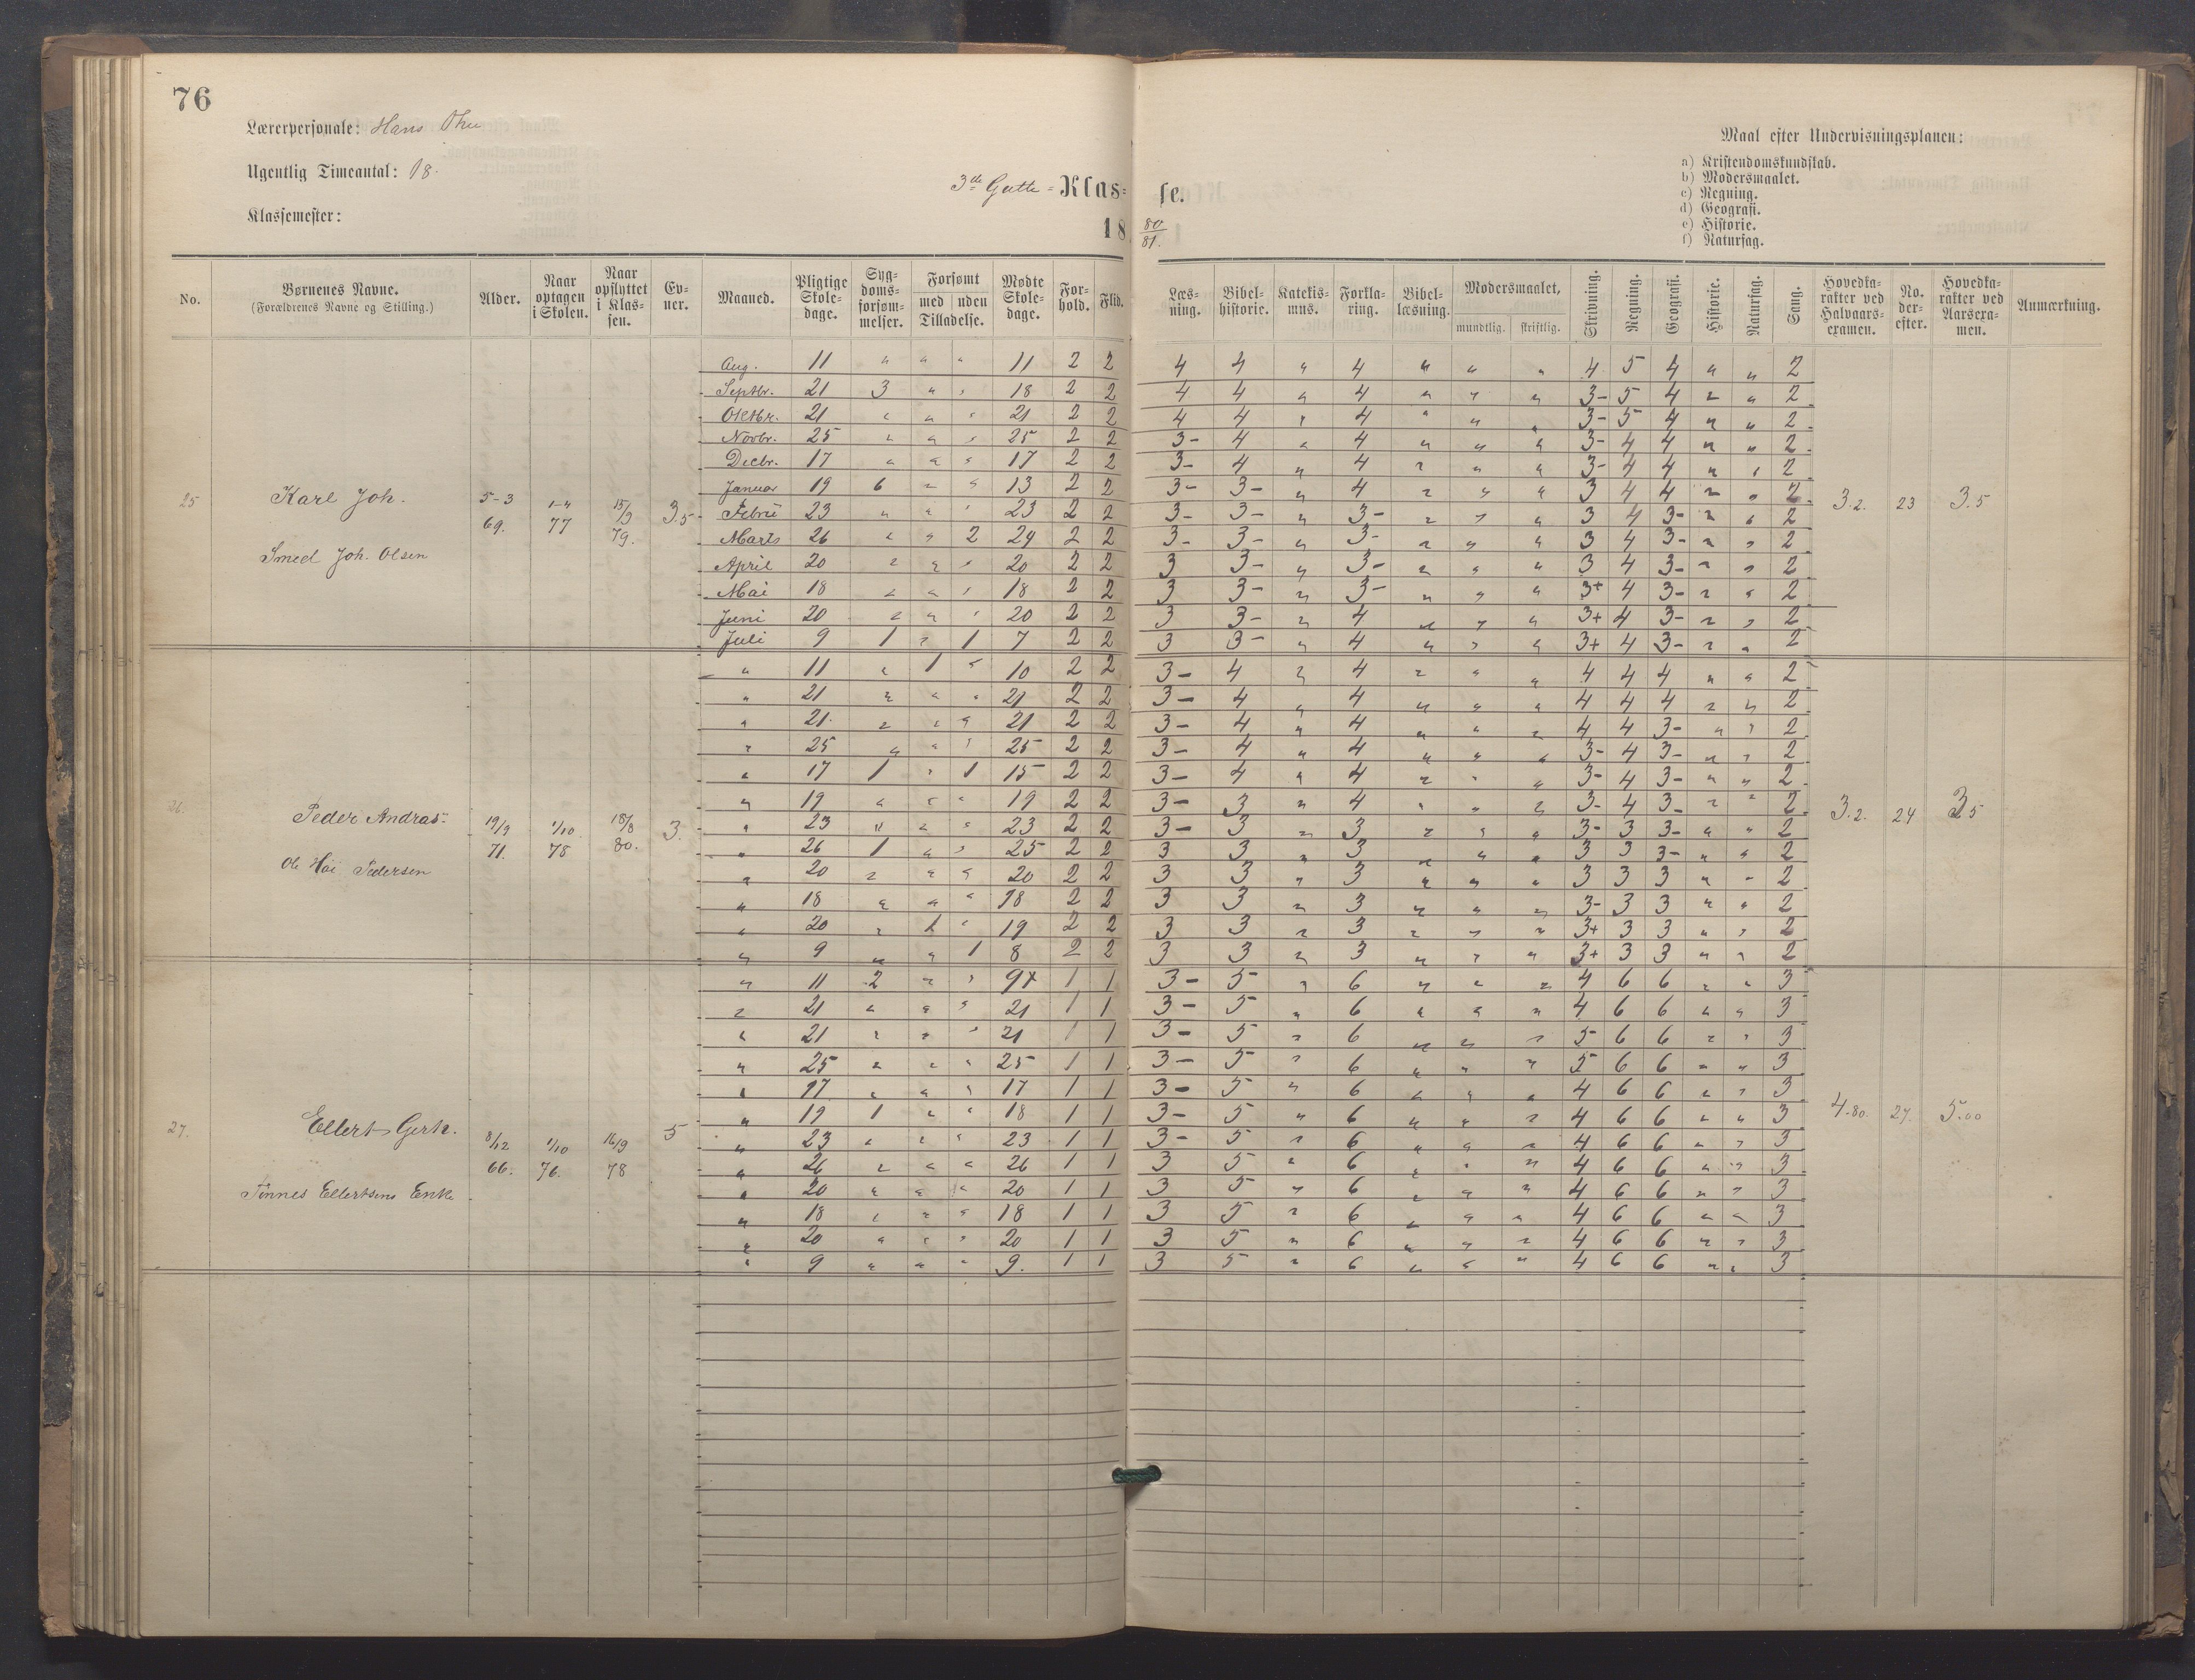 76
Lærerpersonale: Hans
Ugentlig Timeantal: 18.
Klassemester:
3die Gutte = Klasse.
18 80/81.
Maal efter Undervisningsplanen:
a) Kristendomskundskab.
b) Modersmaalet.
c) Regning.
d) Geografi.
e) Historie.
f) Naturfag.
No. Børnenes Navne. (Forældrenes Navne og Stilling.) Alder. Naar optagen i Skolen. Naar opflyttet i Klassen. Evner. Maaned. Pligtige Skoledage. Sygdomsforsømmelser. Forsømt med uden Tilladelse. Mødte Skoledage. Forhold. Flid. Læsning. Bibelhistorie. Katekismus. Forklaring. Bibellæsning. Modersmaalet, mundtlig. skriftlig. Skrivning. Regning. Geografi. Historie. Naturfag. Sang. Hovedkarakter ved Halvaarsexamen. No. derefter. Hovedkarakter ved Aarsexamen. Anmærkning.
25 Karl Joh. Smed Joh. Olsen 5-3 69. 77 15/9 79. 3.5 3.2. 23 3.5
Aug. 11 " " " 11 2 2 4 4 " 4 " " " 4 5 4 " " 2
Septbr. 21 3 " " 18 2 2 4 4 " 4 " " " 3- 5 4 " " 2
Oktbr. 21 " " " 21 2 2 4 4 " 4 " " " 3- 5 4 " " 2
Novbr. 25 " " " 25 2 2 3- 4 " 4 " " " 3- 4 4 " " 2
Decbr. 17 " " " 17 2 2 3- 4 " 4 " " " 3- 4 4 " " 2
Januar 19 6 " " 13 2 2 3- 3- " 4 " " " 3 4 4 " " 2
Febru 23 " " " 23 2 2 3- 3- " 3- " " " 3 4 3- " " 2
Marts 26 " " 2 24 2 2 3- 3- " 3- " " " 3 4 3- " " 2
April 20 " " " 20 2 2 3 3- " 3- " " " 3 4 3- " " 2
Mai 18 " " " 18 2 2 3 3- " 3- " " " 3+ 4 3- " " 2
Juni 20 " " " 20 2 2 3 3- " 4 " " " 3+ 4 3- " " 2
Juli 9 1 " 1 7 2 2 3 3- " 4 " " " 3+ 4 3- " " 2
26. Peder Andreas. Ole Høi Pedersen 19/9 71. 1/10 78 18/8 80. 3. 3.2. 24 3.5
" 11 " 1 " 10 2 2 3- 4 " 4 " " " 4 4 4 " " 2
" 21 " " " 21 2 2 3- 4 " 4 " " " 4 4 4 " " 2
" 21. " " " 21 2 2 3- 4 " 4 " " " 4 4 3- " " 2
" 25 " " " 25 2 2 3- 4 " 4 " " " 3- 4 3- " " 2
" 17 1 " 1 15 2 2 3- 4 " 4 " " " 3- 4 3- " " 2
" 19 " " " 19 2 2 3- 3 " 4 " " " 3- 4 3- " " 2
" 23 " " " 23 2 2 3- 3 " 3 " " " 3- 3 3- " " 2
" 26 1 " " 25 2 2 3 3 " 3 " " " 3 3 3- " " 2
" 20 " " " 20 2 2 3 3 " 3 " " " 3 3 3 " " 2
" 18 " " " 18 2 2 3 3 " 3 " " " 3- 3 3 " " 2
" 20 " 1 " 19 2 2 3 3 " 3 " " " 3+ 3 3 " " 2
" 9 " " 1 8 2 2 3 3 " 3 " " " 3+ 3 3 " " 2
27. Ellert Gerh. Tönnes Ellertsens Enke 8/12 66. 1/10 76. 16/9 78 5 4.80. 27. 5.00
" 11 2 " " 9x 1 1 3- 5 " 6 " " " 4 6 6 " " 3
" 21 " " " 21 1 1 3- 5 " 6 " " " 4 6 6 " " 3
" 21 " " " 21 1 1 3- 5 " 6 " " " 5 6 6 " " 3
" 25 " " " 25 1 1 3- 5 " 6 " " " 5 6 6 " " 3
" 17 " " " 17 1 1 3- 5 " 6 " " " 4 6 6 " " 3
" 19 1 " " 18 1 1 3- 5 " 6 " " " 4 6 6 " " 3
" 23 " " " 23 1 1 3- 5 " 6 " " " 4 6 6 " " 3
" 26 " " " 26 1 1 3 5 " 6 " " " 4 6 6 " " 3
" 20 " " " 20 1 1 3 5 " 6 " " " 4 6 6 " " 3
" 18 " " " 18 1 1 3 5 " 6 " " " 4 6 6 " " 3
" 20 " " " 20 1 1 3 5 " 6 " " " 4 6 6 " " 3
" 9 " " " 9. 1 1 3 5 " 6 " " " 4 6 6 " " 3